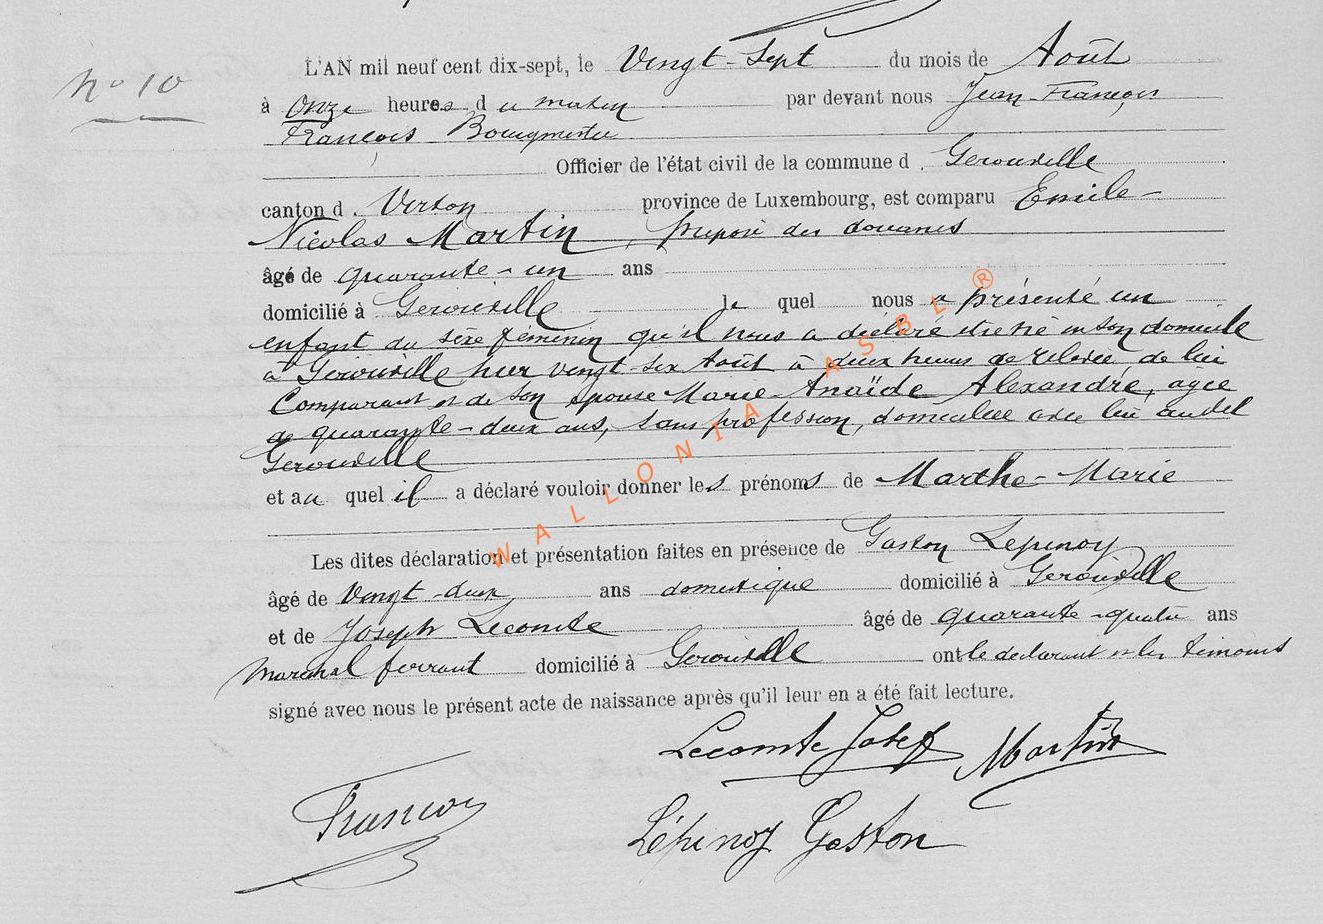 L'AN mil neuf cent dix-sept, le Vingt-Sept du mois de Août
N° 10
à Onze heures du matin par devant nous Jean-François
François Bourgmestre
Officier de l'état civil de la commune d Gerouville
canton d Virton province de Luxembourg, est comparu Emile-
Nicolas Martin, préposé des douanes
âgé de quarante-un ans
domicilié à Gerouville le quel nous a présenté un
enfant du sexe féminin qu'il nous a déclaré être né en son domicile
à Gerouville hier vingt-six Août à deux heures de relevée de lui
Comparant et de son épouse Marie-Anaïde Alexandre, agée
de quarante-deux ans, sans profession, domiciliée avec lui audit
Gerouville
et au quel il a déclaré vouloir donner les prénoms de Marthe-Marie
Les dites déclaration et présentation faites en présence de Gaston Lepinoy
âgé de Vingt-deux ans domestique domicilié à Gerouville
et de Joseph Lecomte âgé de quarante-quatre ans
Maréchal ferrant domicilié à Gerouville ont le déclarant et les témoins
signé avec nous le présent acte de naissance après qu'il leur en a été fait lecture.
Lecomte Josef Martin
François
Lépinoy Gaston
WALLONIA ASBL ®